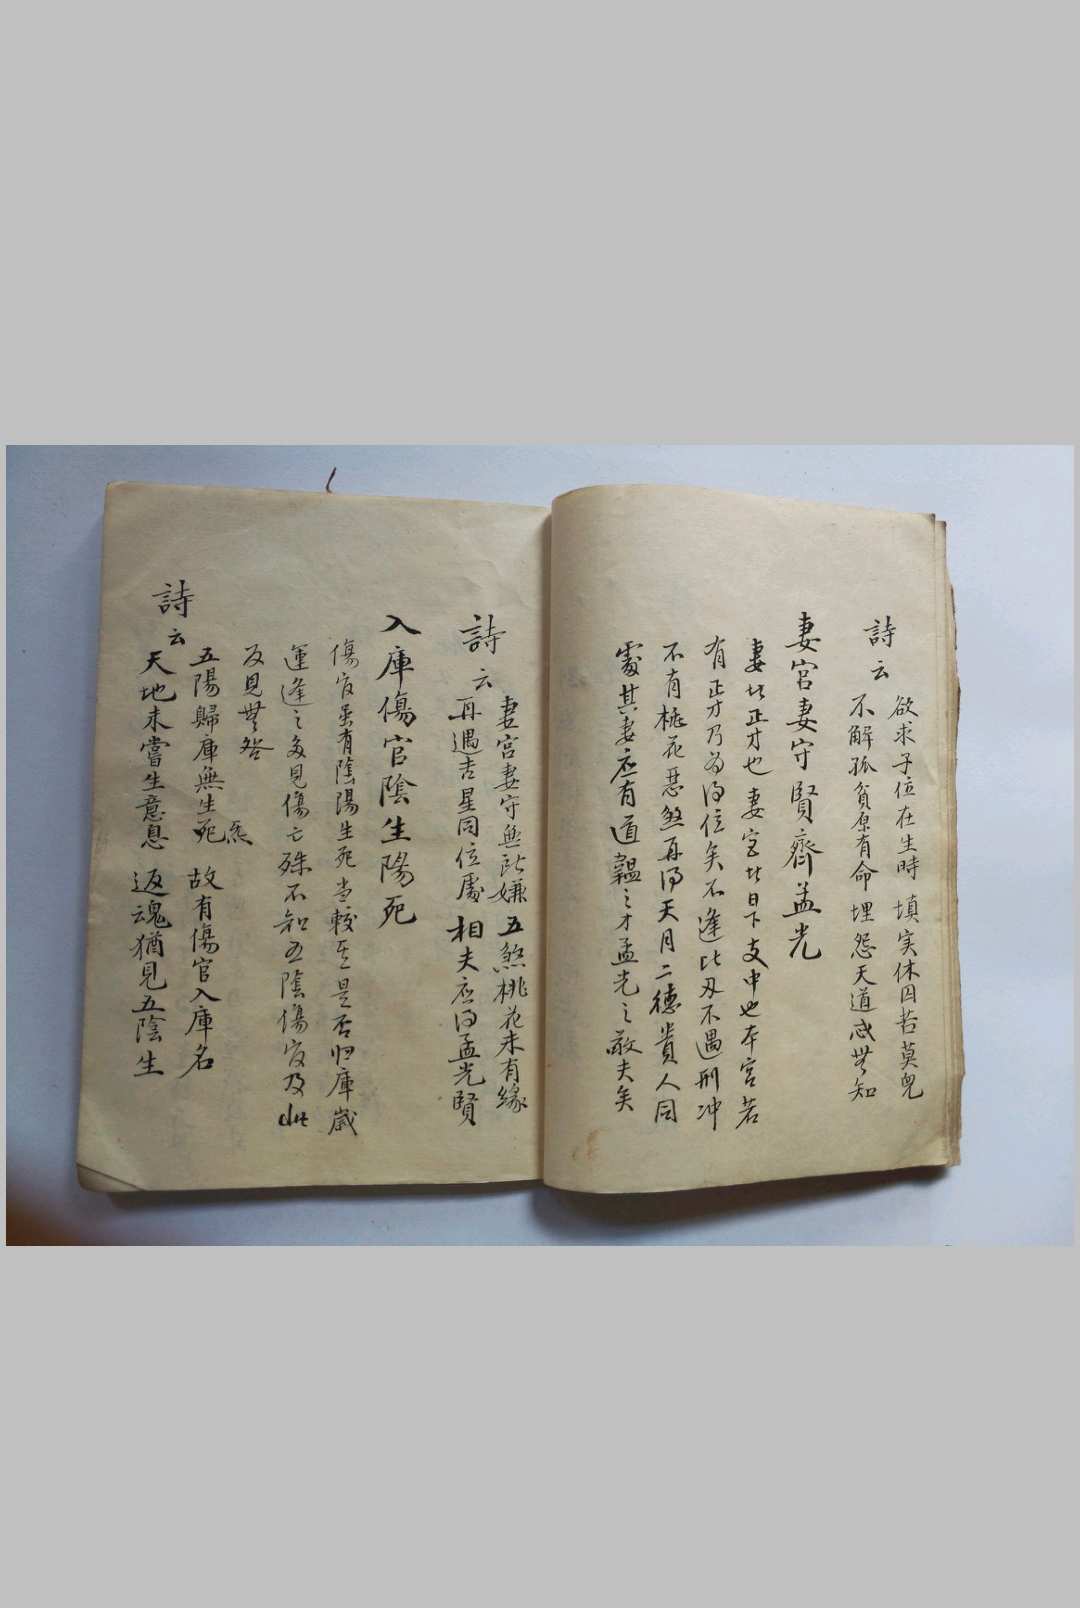 詩云
欲求子位在生時 填实休囚若莫兒
不解孤貧原有命 埋怨天道忒無知
妻宮妻守賢齊孟光
妻者正才也 妻宮者日下支中也本宮若
有正才乃为得位矣不逢比刃不遇刑冲
不有桃花惡煞再得天月二德貴人同
處其妻应有道韞之才孟光之敬夫矣
詩云
妻宮妻守無比嫌 五煞桃花未有緣
再遇吉星同位處 相夫应得孟光賢
入庫傷官陰生陽死
傷官虽有陰陽生死 当較其是否归庫歲
運逢之多見傷亡殊不知五陰傷官及此
反見無咎
詩云
五陽歸庫無生死炁 故有傷官入庫名
天地未嘗生意息 返魂猶見五陰生